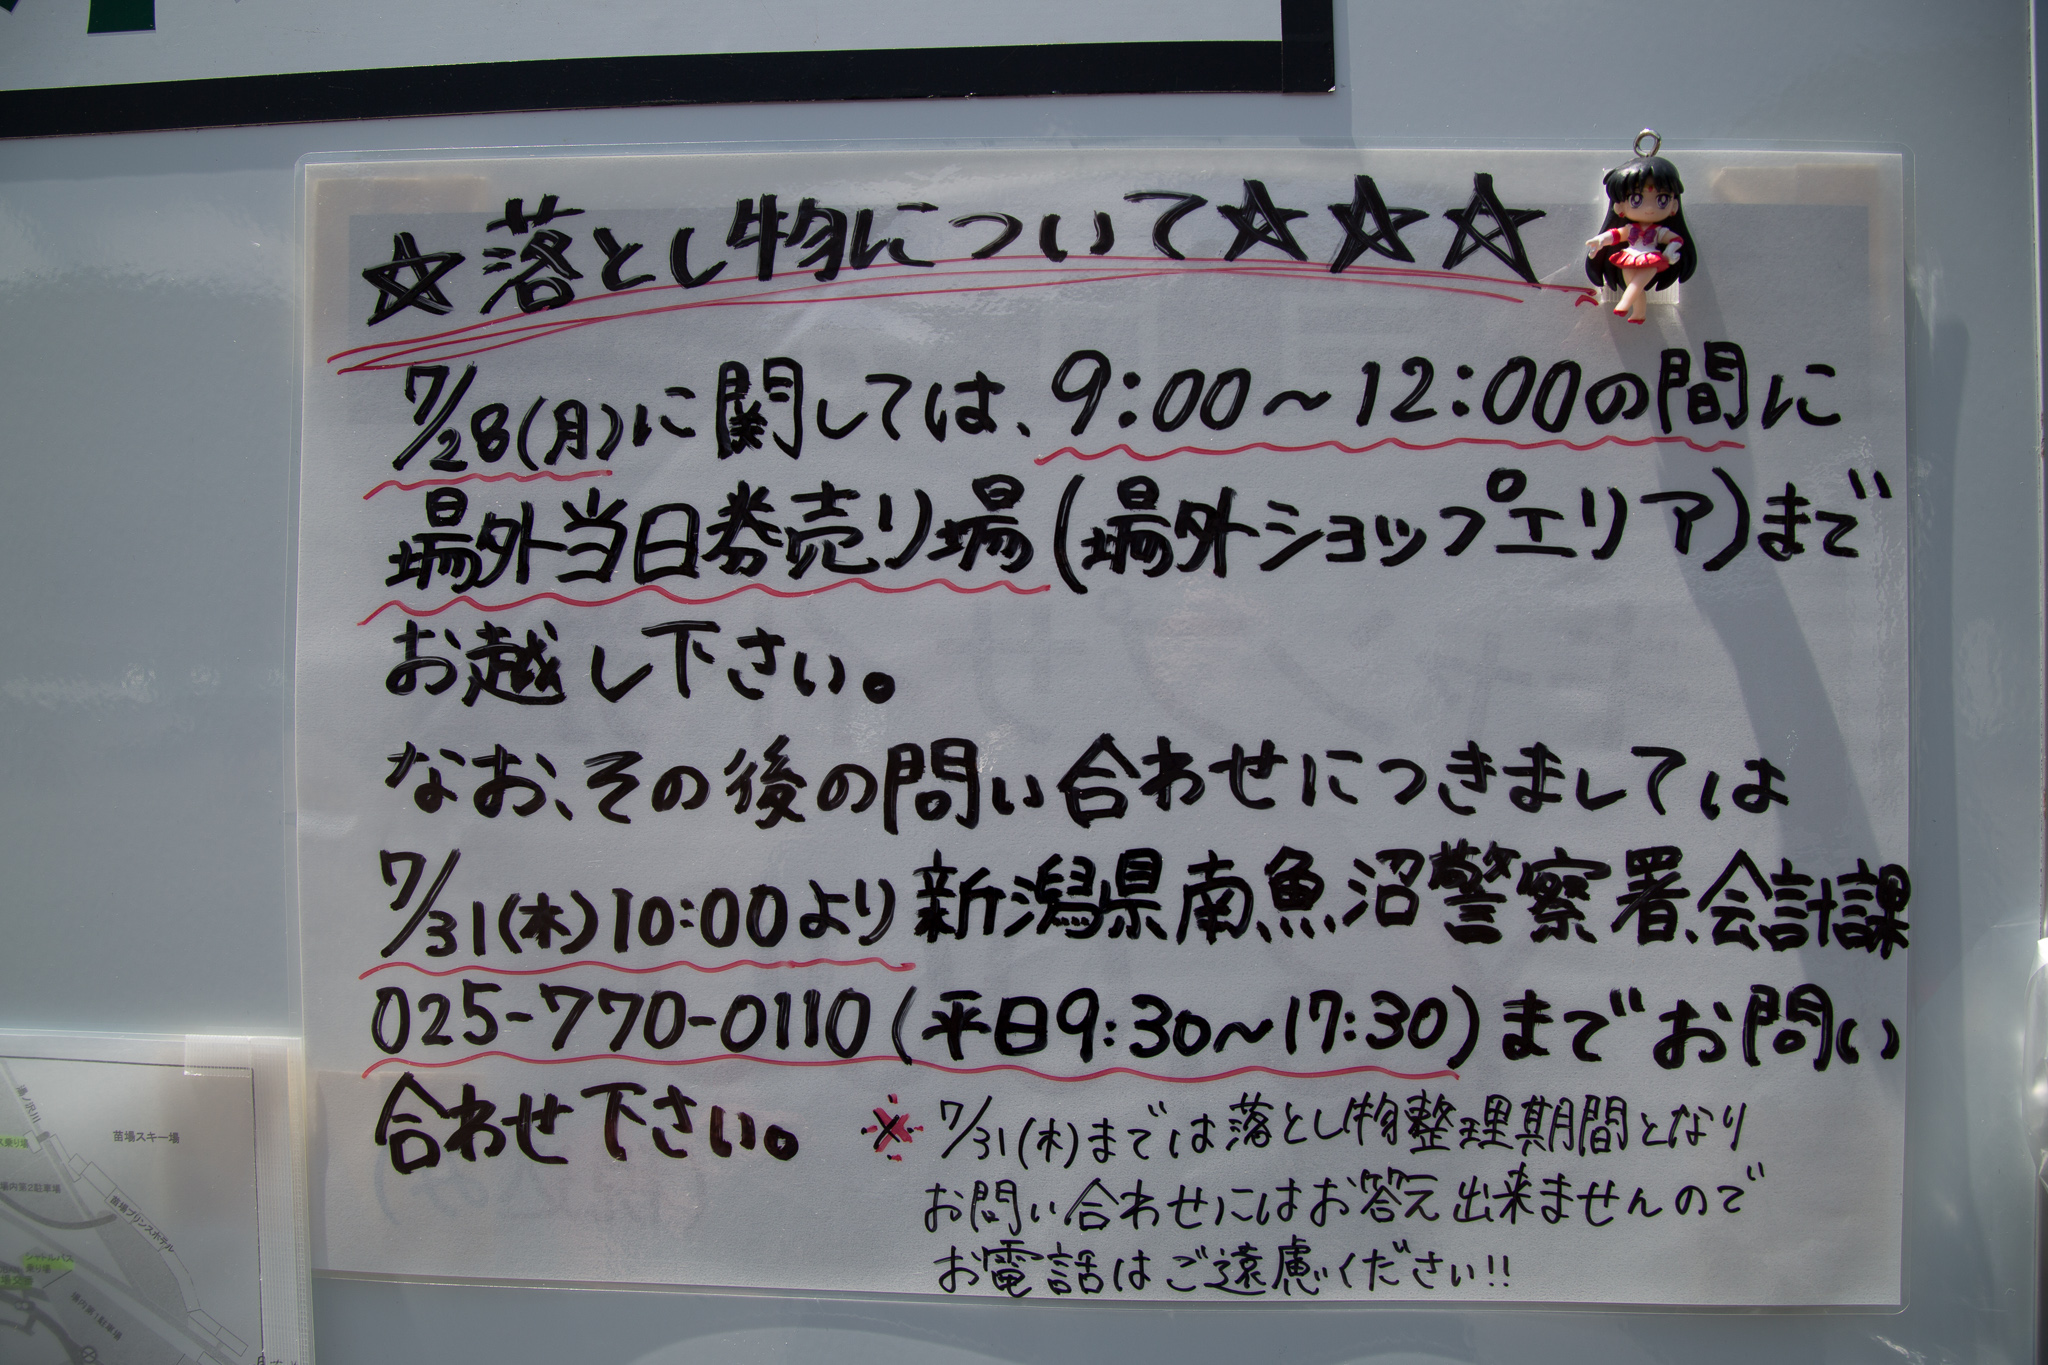 ☆落とし物について☆☆☆
7/28(月)に関しては、9:00〜12:00の間に
場外当日券売り場(場外ショップエリア)まで
お越し下さい。
なお、その後の問い合わせにつきましては
7/31(木)10:00より新潟県南魚沼警察署、会計課
025-770-0110(平日9:30〜17:30)までお問い
合わせ下さい。
※7/31(木)までは落とし物整理期間となり
お問い合わせにはお答え出来ませんので
お電話はご遠慮ください!!
湯ノ沢川
苗場スキー場
場内第2駐車場
苗場プリンスホテル
シャトルバス
乗り場
場内第1駐車場